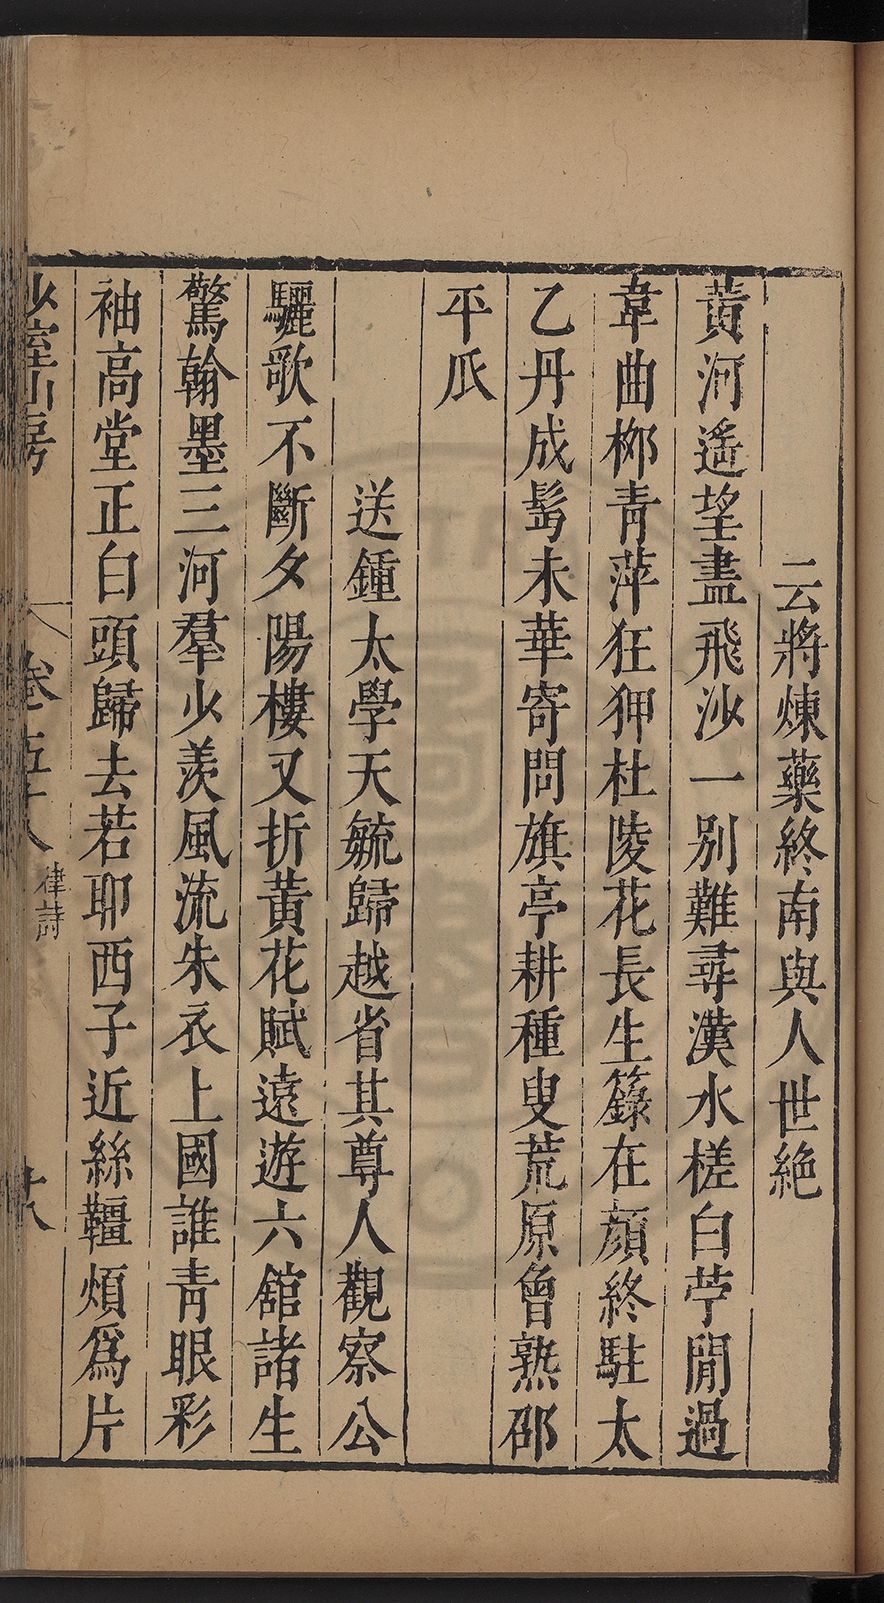 云將煉藥終南與人世絶
黃河遙望盡飛沙一别難尋漢水槎白苧閒過
韋曲栁青萍狂狎杜陵花長生籙在顔終駐太
乙丹成髩未華寄問旗亭耕種叟荒原曾熟邵
平瓜
送鍾太學天毓歸越省其尊人觀察公
驪歌不斷夕陽樓又折黃花賦遠遊六舘諸生
驚翰墨三河羣少羨風流朱衣上國誰青眼彩
袖高堂正白頭歸去若耶西子近絲韁煩爲片
少室山房
卷之五十八
律詩
十八